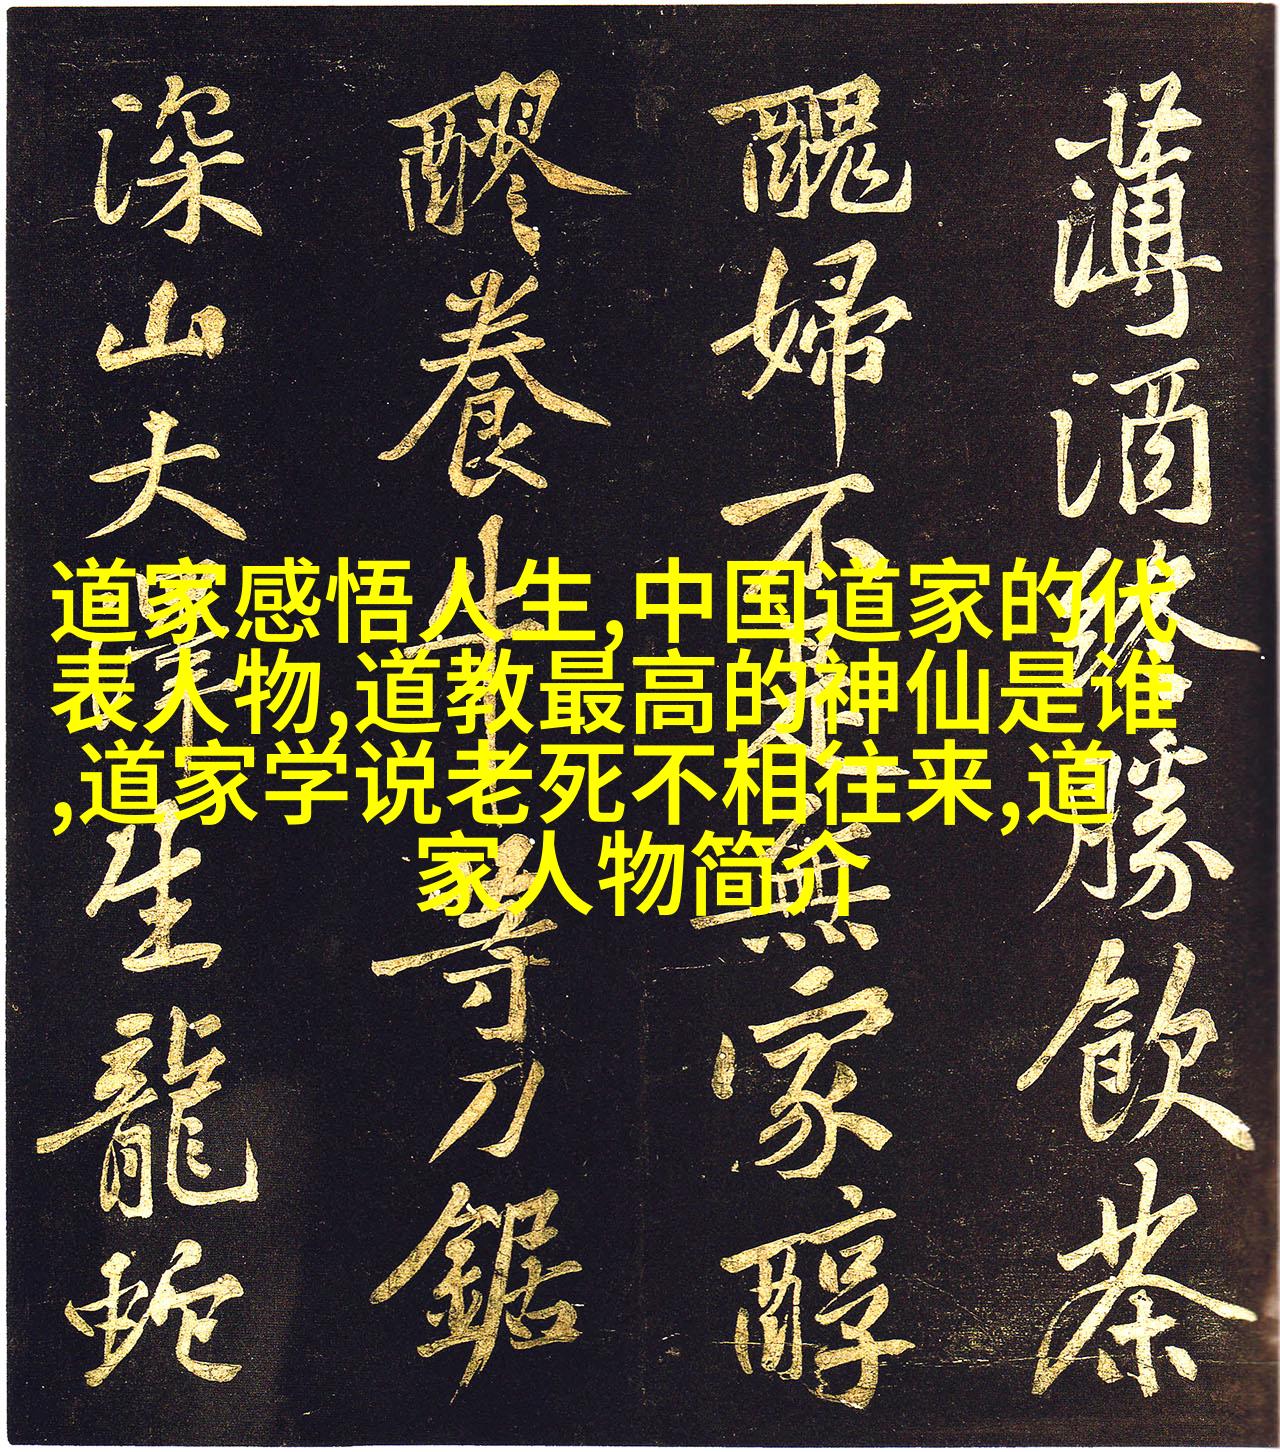 薄酒終勝飲茶
醜婦不是無家醇
醪養牛等刀鋸
深山大澤生龍蛇
道家感悟人生,中国道家的代
表人物,道教最高的神仙是谁
,道家学说老死不相往来,道
家人物简介